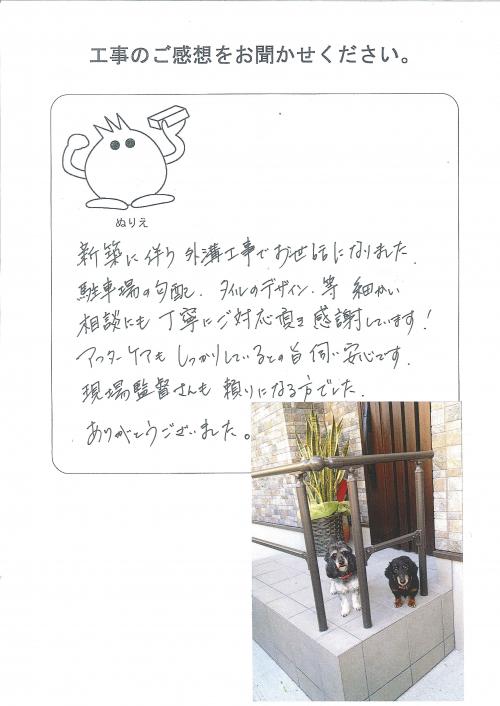 工事のご感想をお聞かせください。
ぬりえ
新築に伴う外溝工事でお世話になりました。
駐車場の勾配、タイルのデザイン、等 細かい
相談にも丁寧にご対応頂き感謝しています！
アフターケアもしっかりしているとの旨伺い安心です。
現場監督さんも頼りになる方でした。
ありがとうございました。